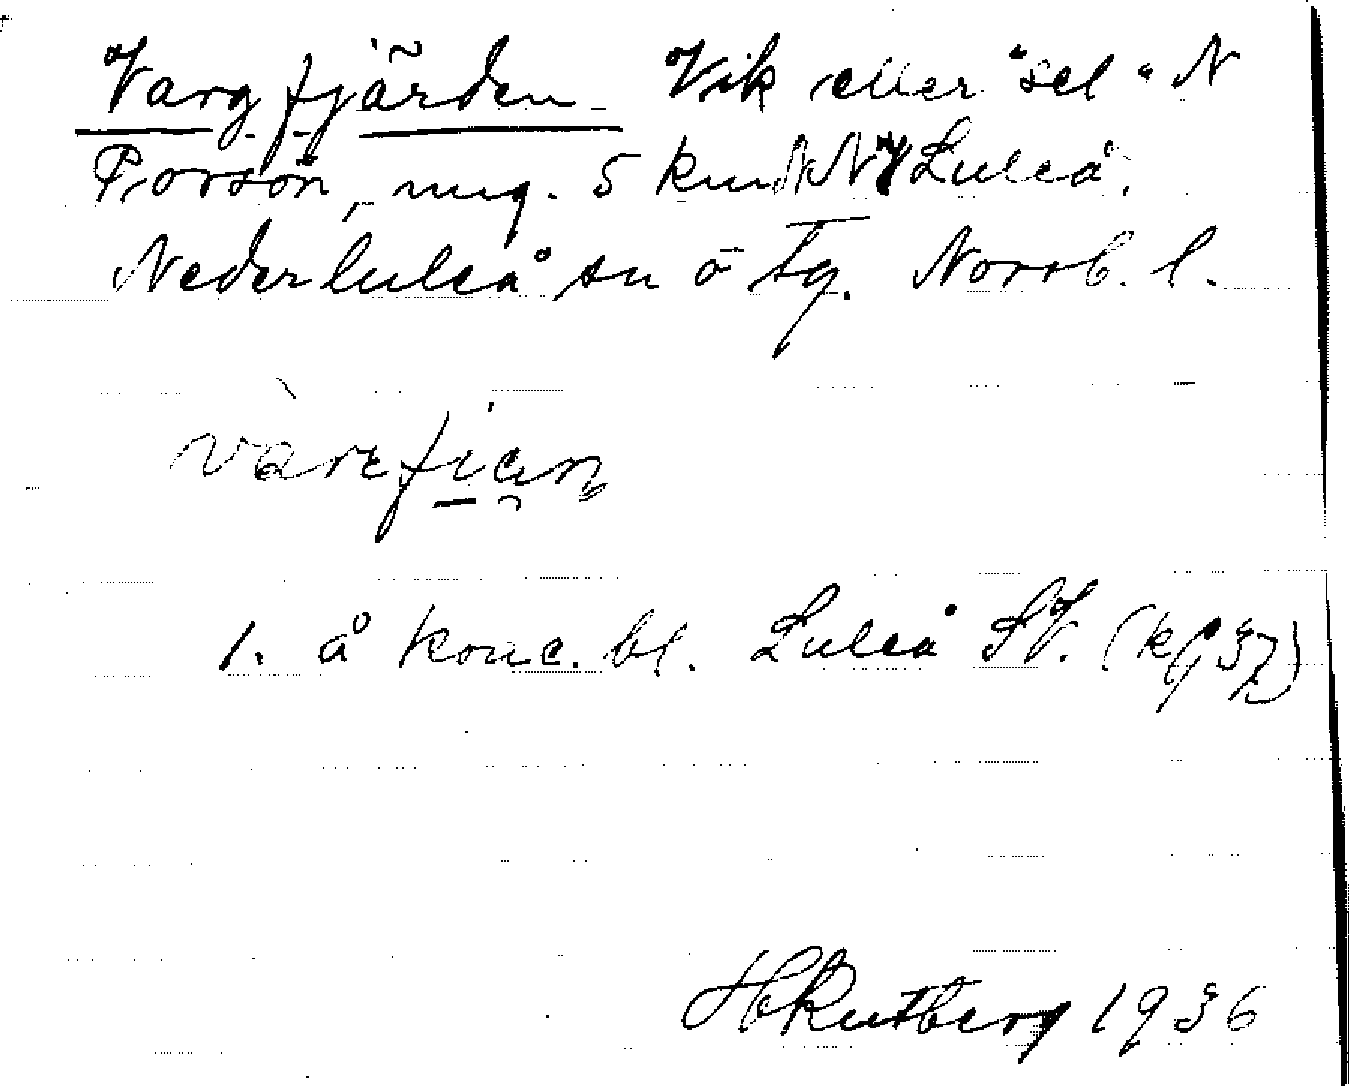 Vargfjärden Vik eller "sel" N
Porsön, ung. 5 km NNV Luleå.
Nederluleå sn ö tg. Norrb. l.
vàrefian
1. å konc. bl. Luleå SV. (kf 37)
H Rutberg 1936